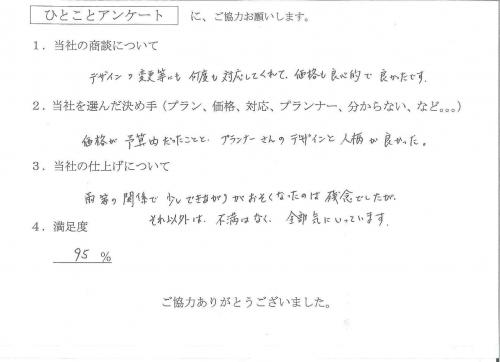 ひとことアンケート に、ご協力お願いします。
1．当社の商談について
デザインの変更等にも何度も対応してくれて、価格も良心的で良かったです。
2．当社を選んだ決め手（プラン、価格、対応、プランナー、分からない、など。。。）
価格が予算内だったことと、プランナーさんのデザインと人柄が良かった。
3．当社の仕上げについて
雨等の関係で少しできあがりがおそくなったのは残念でしたが、
それ以外は、不満はなく、全部気にいっています。
4．満足度
95 %
ご協力ありがとうございました。